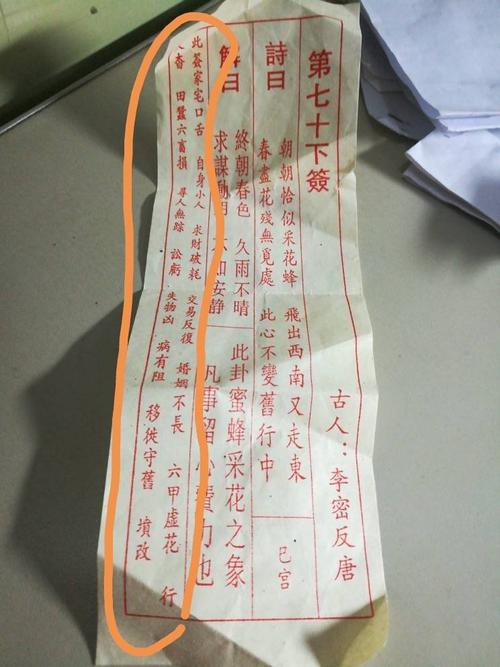 第七十下簽
古人：李密反唐
詩曰
朝朝恰似采花蜂 飛出西南又走東
春盡花殘無覓處 此心不變舊行中
巳宮
解曰
終朝春色 久雨不晴 此卦蜜蜂采花之象
求謀動用 不如安静 凡事留心費力也
此簽家宅口舌 自身小人 求財破耗 交易反復 婚姻不長 六甲虛花 行
人杳 田蠶六畜損 尋人無踪 訟虧 失物凶 病有阻 移徙守舊 墳改